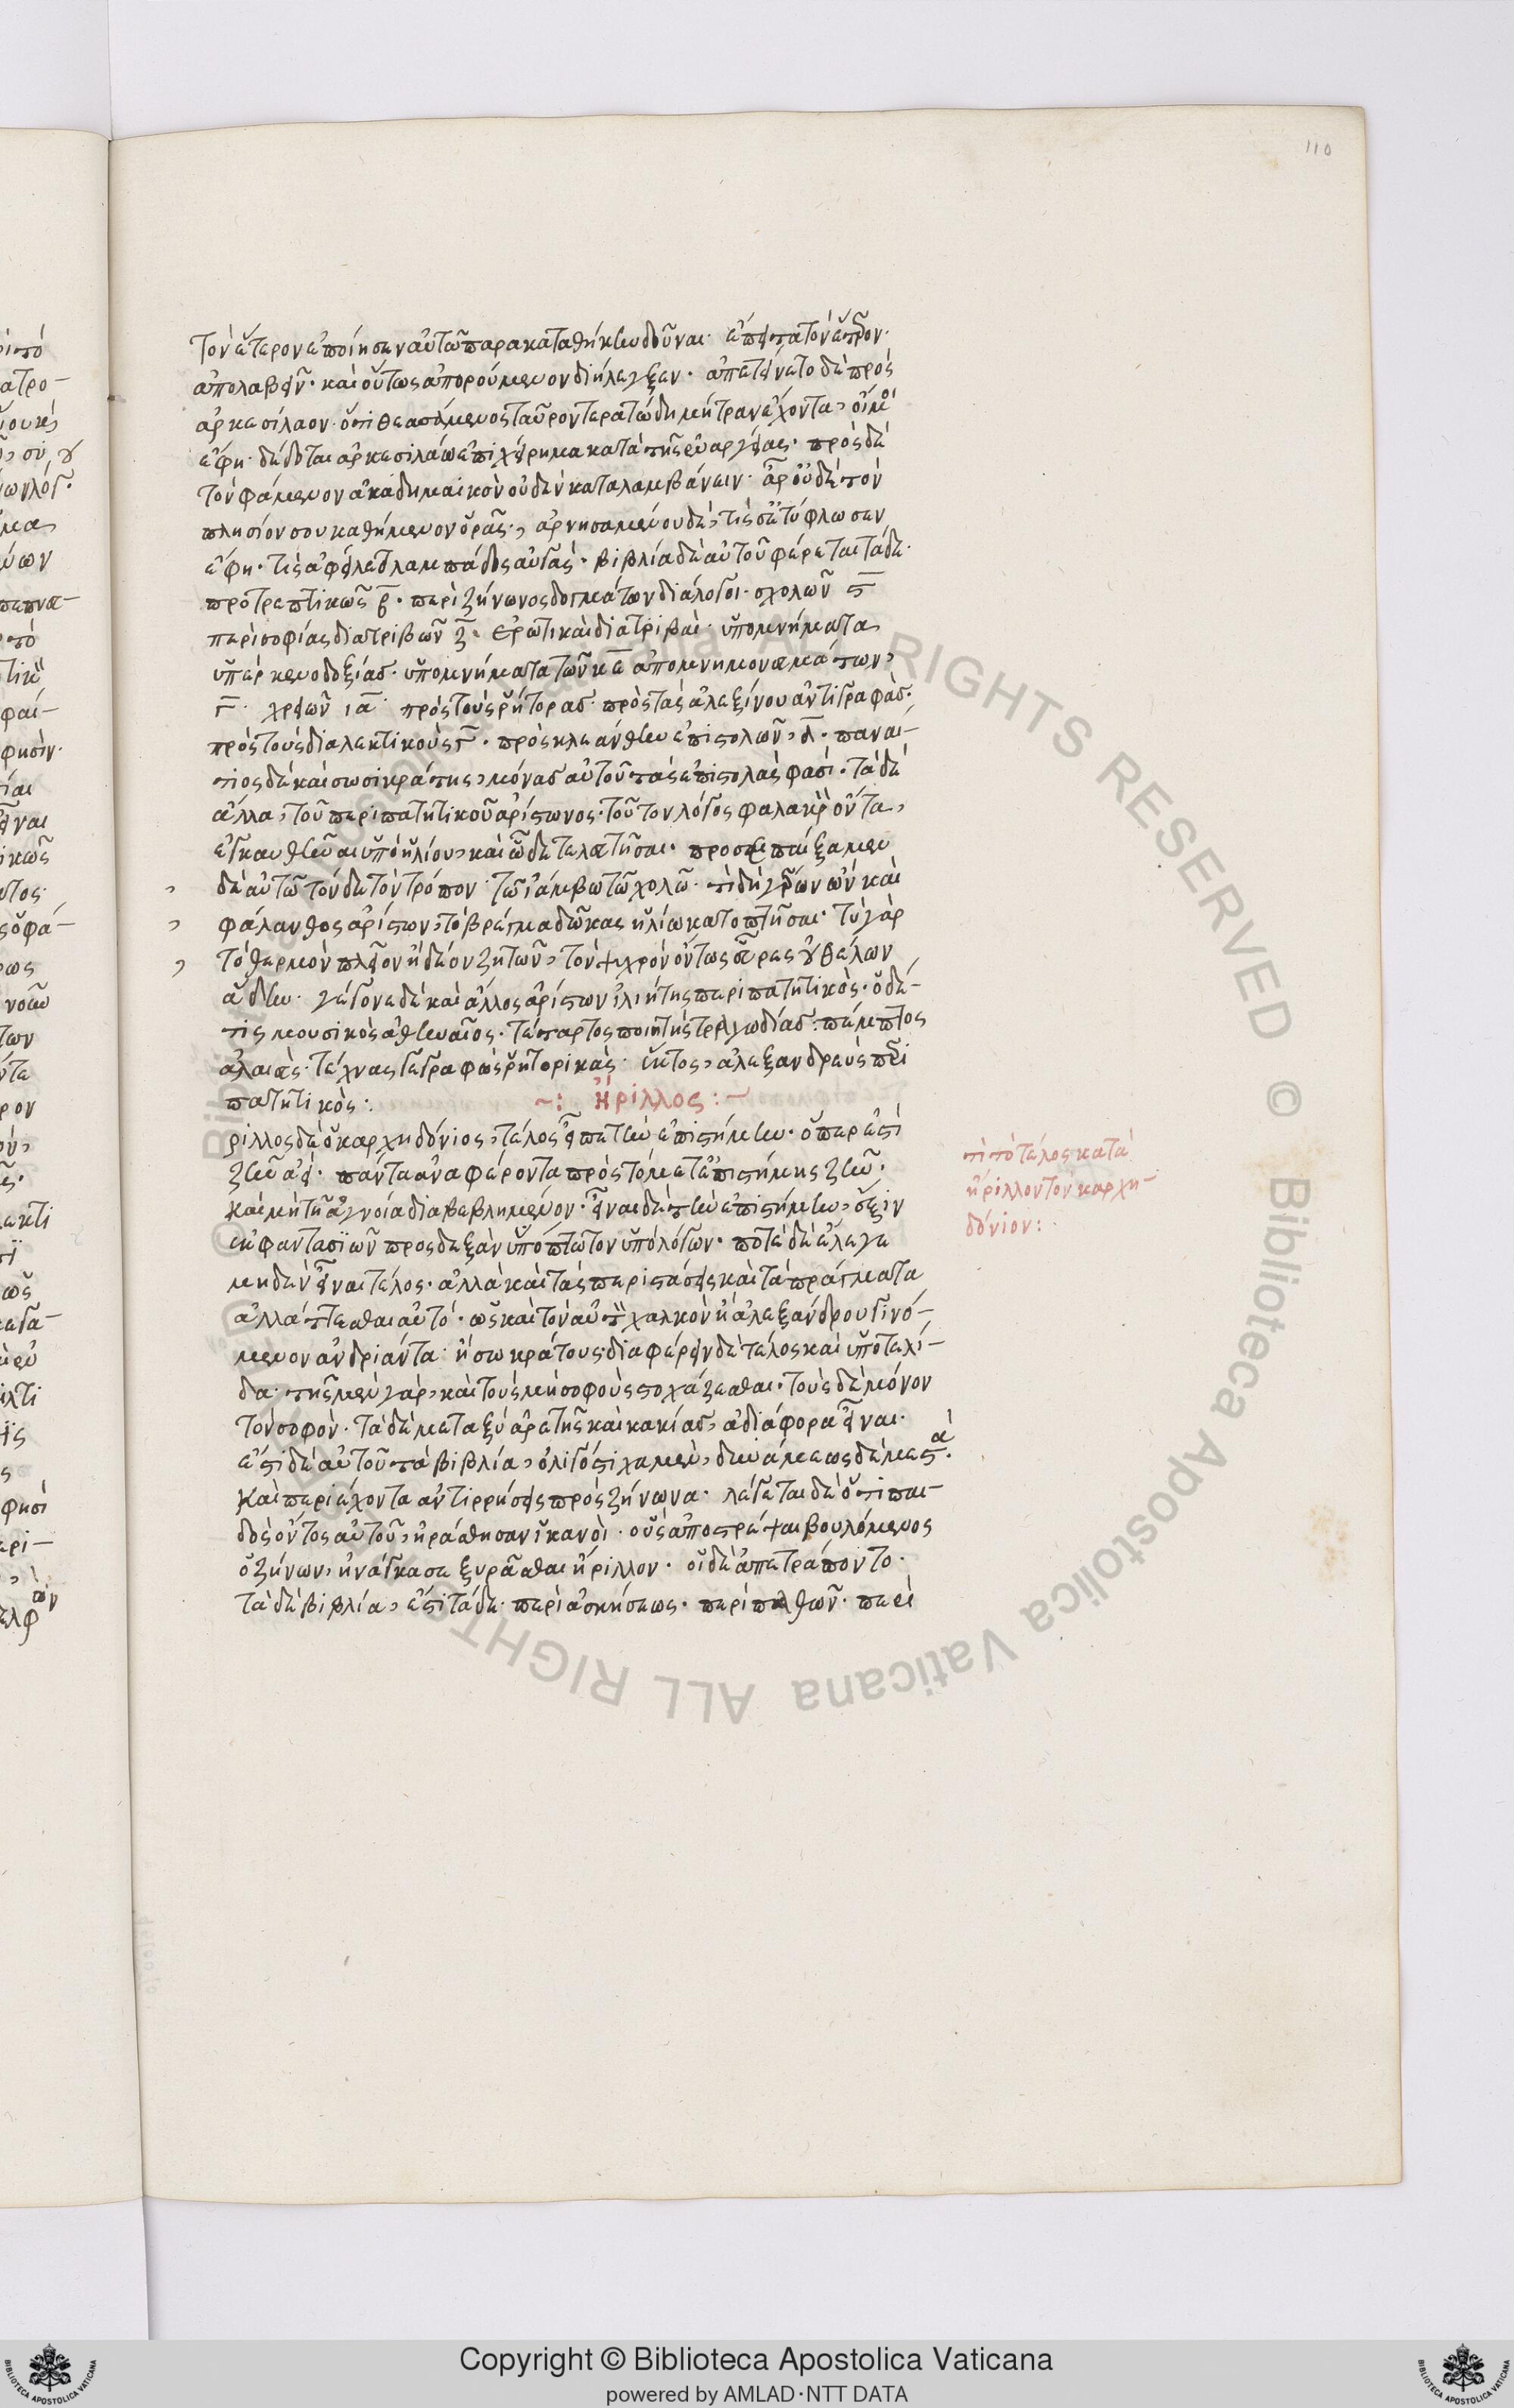 110
τὸν ἕτερον ἐποίησεν αὐτῶ παρακαταθήκην δοῦναι· ἔπειτα τὸν ἕτερον·
ἀπολαβεῖν· καὶ οὕτως ἀπορούμενον διήλεγξεν· ἀπετείνετο δὲ πρὸς
ἀρκεσίλαον· ὅτι θεασάμενος ταῦρον τερατώδη μήτραν ἔχοντα, οἴμοι
ἔφη· δέδοται ἀρκεσιλάω ἐπιχείρημα κατὰ τῆς ἐναργείας· πρὸς δὲ
τὸν φάμενον ἀκαδημαικὸν οὐδὲν καταλαμβάνειν· ἆρ' οὐδὲ τὸν
πλησίον σου καθήμενον ὁρᾶς; ἀρνησαμένου δὲ, τίς σε τύφλωσεν
ἔφη· τίς ἀφείλετο λαμπάδος αὐγάς· βιβλία δὲ αὐτοῦ φέρεται τάδε·
προτρεπτικῶν β· περὶ ζήνωνος δογμάτων διάλογοι· σχολῶν ϛ
περὶ σοφίας διατριβῶν ζ· ἐρωτικαὶ διατριβαὶ· ὑπομνήματα
ὑπὲρ κενοδοξίας· ὑπομνήματα τῶν κε ἀπομνημονευμάτων,
γ· χρειῶν ια· πρὸς τοὺς ῥήτορας· πρὸς τὰς ἀλεξίνου ἀντιγραφὰς·
πρὸς τοὺς διαλεκτικοὺς γ· πρὸς κλεάνθην ἐπιστολῶν, δ· παναί-
τιος δὲ καὶ σωσικράτης, μόνας αὐτοῦ τὰς ἐπιστολάς φασι· τὰ δὲ
ἄλλα, τοῦ περιπατητικοῦ ἀρίστωνος· τοῦτον λόγος φαλακρὸν ὄντα,
ἐγκαυθῆναι ὑπὸ ἡλίου, καὶ ὧδε τελευτῆσαι· προσεπαίξαμεν
δὲ αὐτῶ τόνδε τὸν τρόπον· τῶ ἰάμβω τῶ χολῶ· τί δὴ γέρων ὢν καὶ
φάλανθος ἀρίστων, τὸ βρέγμα δῶκας ἡλίω κατοπτῆσαι· τὺ γὰρ
τὸ θερμὸν πλεῖον ἢ δέον ζητῶν, τὸν ψυχρὸν ὄντως εὗρες οὐ θέλων
ἅδην· γέγονε δὲ καὶ ἄλλος ἀρίστων ἰλιήτης περιπατητικὸς· ὁ δέ
τις μουσικὸς ἀθηναῖος· τέταρτος ποιητὴς τραγωδίας· πέμπτος
ἀλαιεὺς· τέχνας γεγραφὼς ῥητορικάς· ἕκτος, ἀλεξανδρεὺς περι
πατητικὸς:
~: Ἥριλλος: —
ριλλος δὲ ὁ καρχηδόνιος, τέλος εἶπε τὴν ἐπιστήμην· ὅπερ ἐστὶ
ζῆν ἀεὶ· πάντα ἀναφέροντα πρὸς τὸ μετ' ἐπιστήμης ζῆν·
καὶ μὴ τῆ ἀγνοία διαβεβλημένον· εἶναι δὲ τὴν ἐπιστήμην, ἕξιν
ἐκ φαντασϊῶν προςδεξὲν ὑπόπτωτον ὑπὸ λόγων· ποτὲ δὲ ἔλεγε
μηδὲν εἶναι τέλος· ἀλλὰ καὶ τὰς περιστάσεις καὶ τὰ πράγματα
ἀλλάττεσθαι αὐτό· ὡς καὶ τὸν αὐτὸν χαλκὸν ἢ ἀλεξάνδρου γινό-
μενον ἀνδριάντα· ἢ σωκράτους· διαφέρειν δὲ τέλος καὶ ὑποτελί-
δα· τῆς μὲν γὰρ, καὶ τοὺς μὴ σοφοὺς στοχάζεσθαι· τοῦ δὲ μόνον
τὸν σοφὸν· τὰ δὲ μεταξὺ ἀρετῆς καὶ κακίας, ἀδιάφορα εἶναι·
ἔστι δὲ αὐτοῦ τὰ βιβλία, ὀλιγόστιχα μὲν, δυνάμεως δὲ μεστά·
καὶ περιέχοντα ἀντιρρήσεις πρὸς ζήνωνα· λέγεται δὲ ὅτι παι-
δὸς ὄντος αὐτοῦ, ἠράσθησαν ἱκανοὶ· οὓς ἀποστρέψαι βουλόμενος
ὁ ζήνων, ἠνάγκασε ξυρᾶσθαι ἥριλλον· οἱ δὲ ἀπετρέποντο·
τὰ δὲ βιβλία, ἐστὶ τάδε· περὶ ἀσκήσεως· περὶ παθῶν· περὶ
τί τὸ τέλος κατὰ
ἥριλλον τὸν καρχη-
δόνιον:
© Biblioteca Apostolica Vaticana ALL RIGHTS RESERVED
Copyright © Biblioteca Apostolica Vaticana
powered by AMLAD·NTT DATA